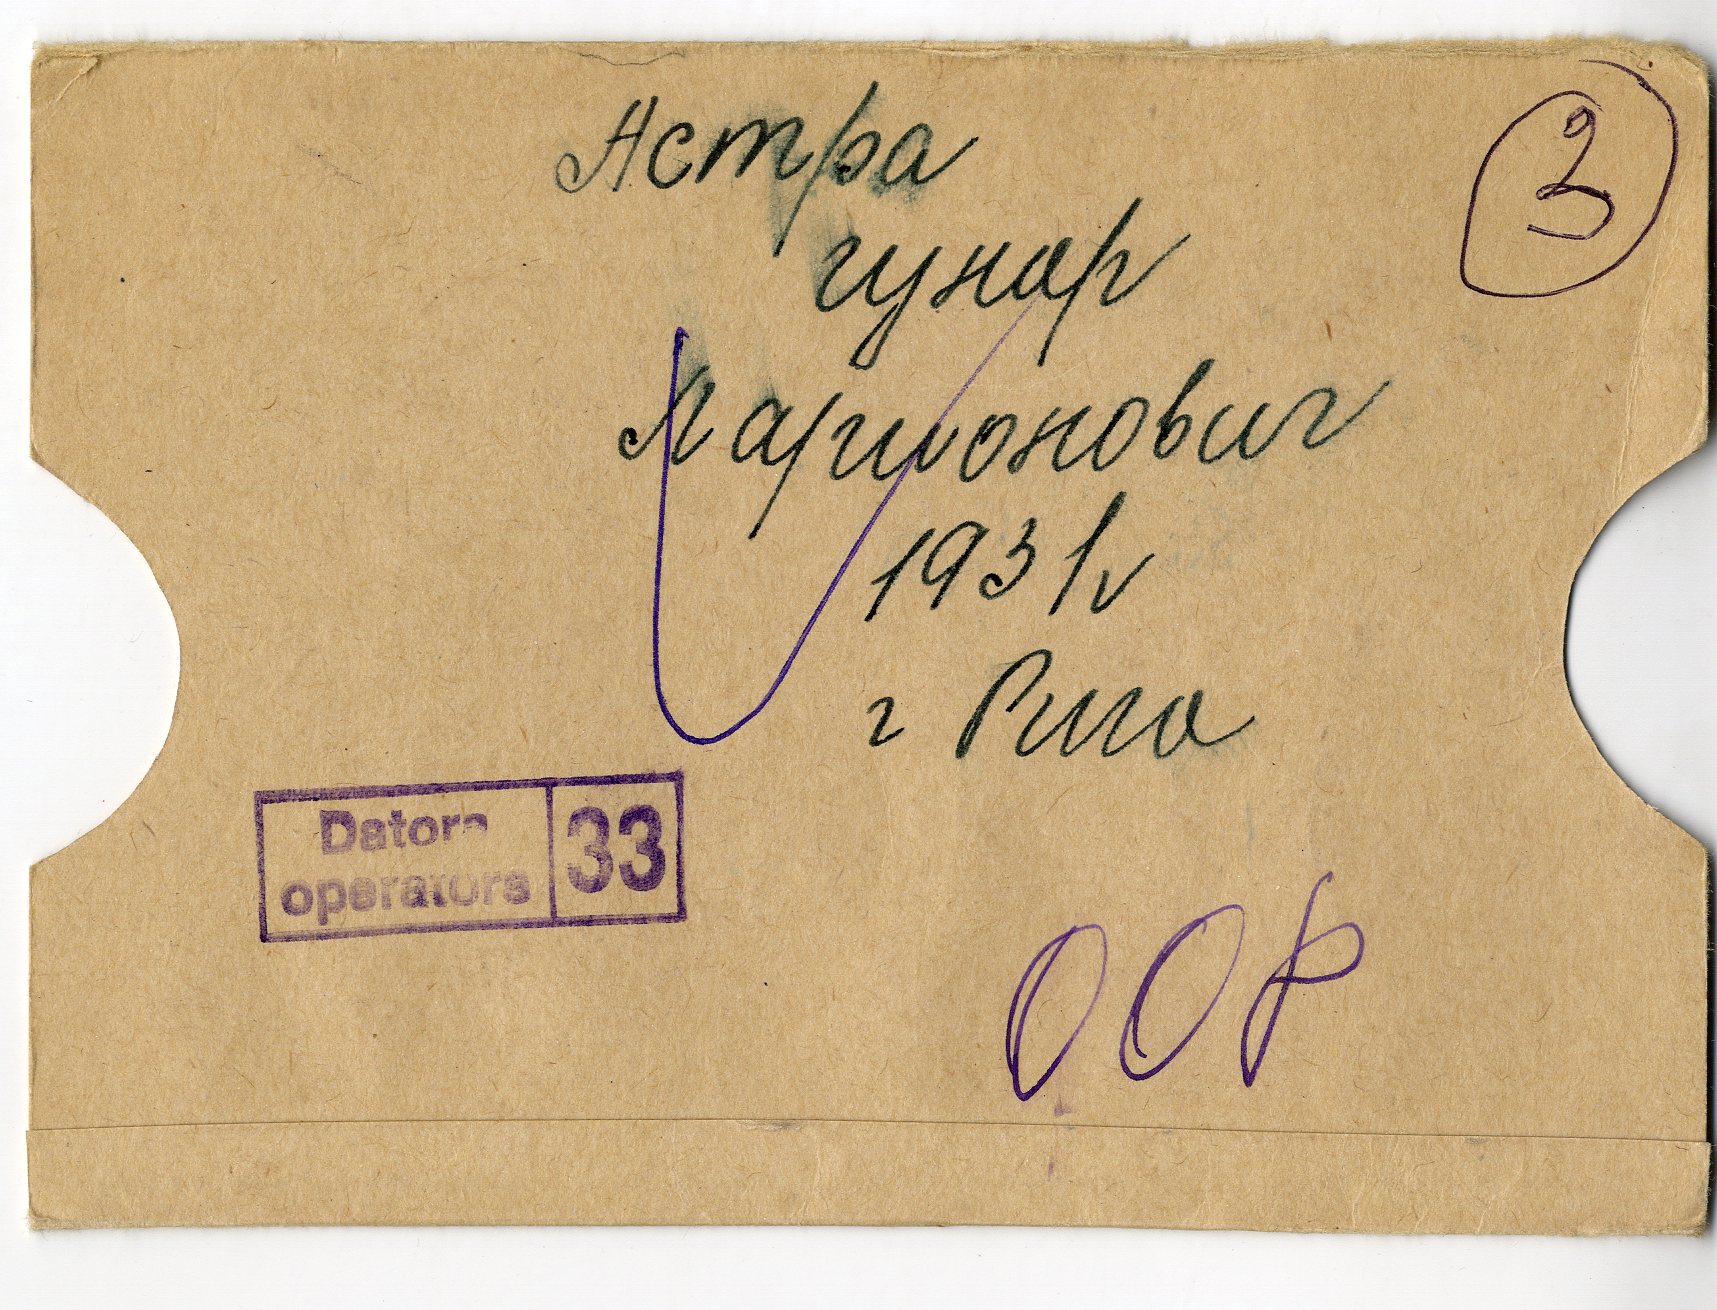 2
Астра
гунар
Ларионович
1931г
г Рига
Datora
operators
33
ООФ